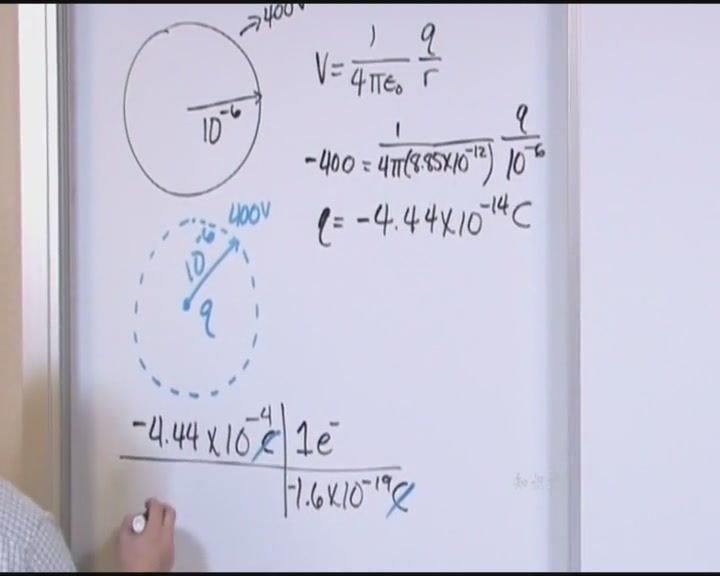 →400V
10⁻⁶
V = 1/4πε₀ q/r
-400 = 1/4π(8.85×10⁻¹²) q/10⁻⁶
q = -4.44×10⁻¹⁴ C
400V
10⁻⁶
q
-4.44×10⁻⁴ C | 1e⁻
-1.6×10⁻¹⁹ C